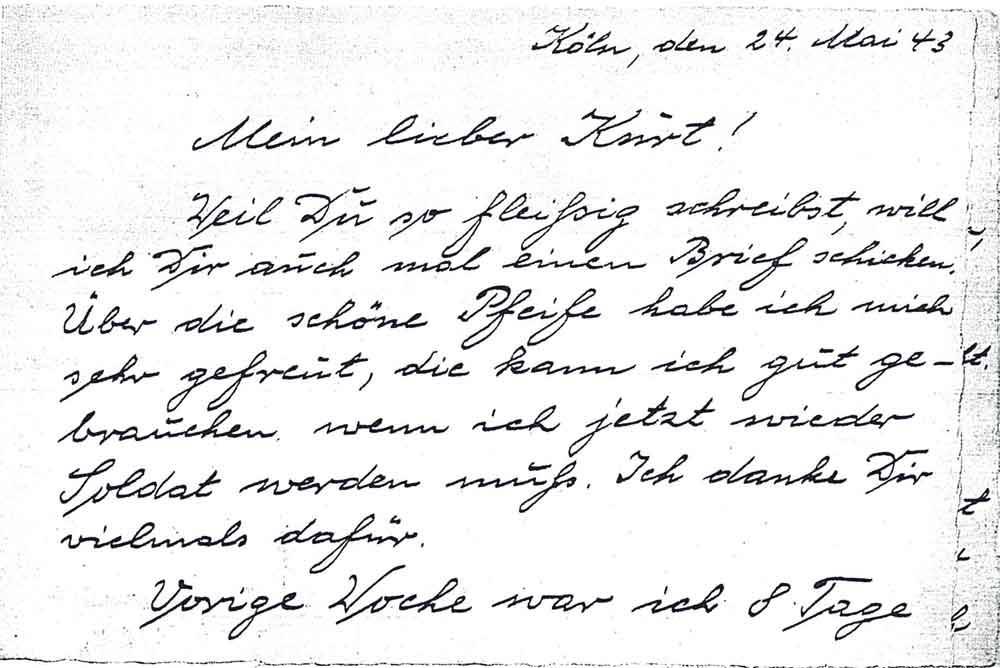 Köln, den 24. Mai 43
Mein lieber Kurt!
Weil Du so fleißig schreibst, will
ich Dir auch mal einen Brief schicken.
Über die schöne Pfeife habe ich mich
sehr gefreut, die kann ich gut ge-
brauchen wenn ich jetzt wieder
Soldat werden muß. Ich danke Dir
vielmals dafür.
Vorige Woche war ich 8 Tage